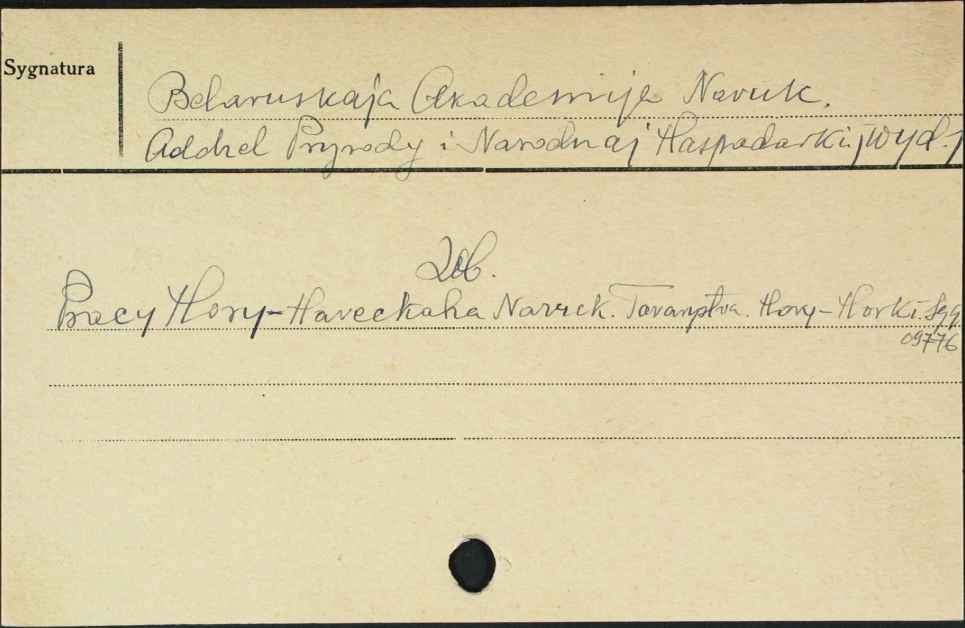 Sygnatura
Belaruskaja Akademija Navuk.
Addzel Pryrody i Narodnaj Haspadarki. [Wyd.]
Zob.
Pracy Hory-Haveckaha Navuk. Tavarystva. Hory-Horki. Sgg.
09776